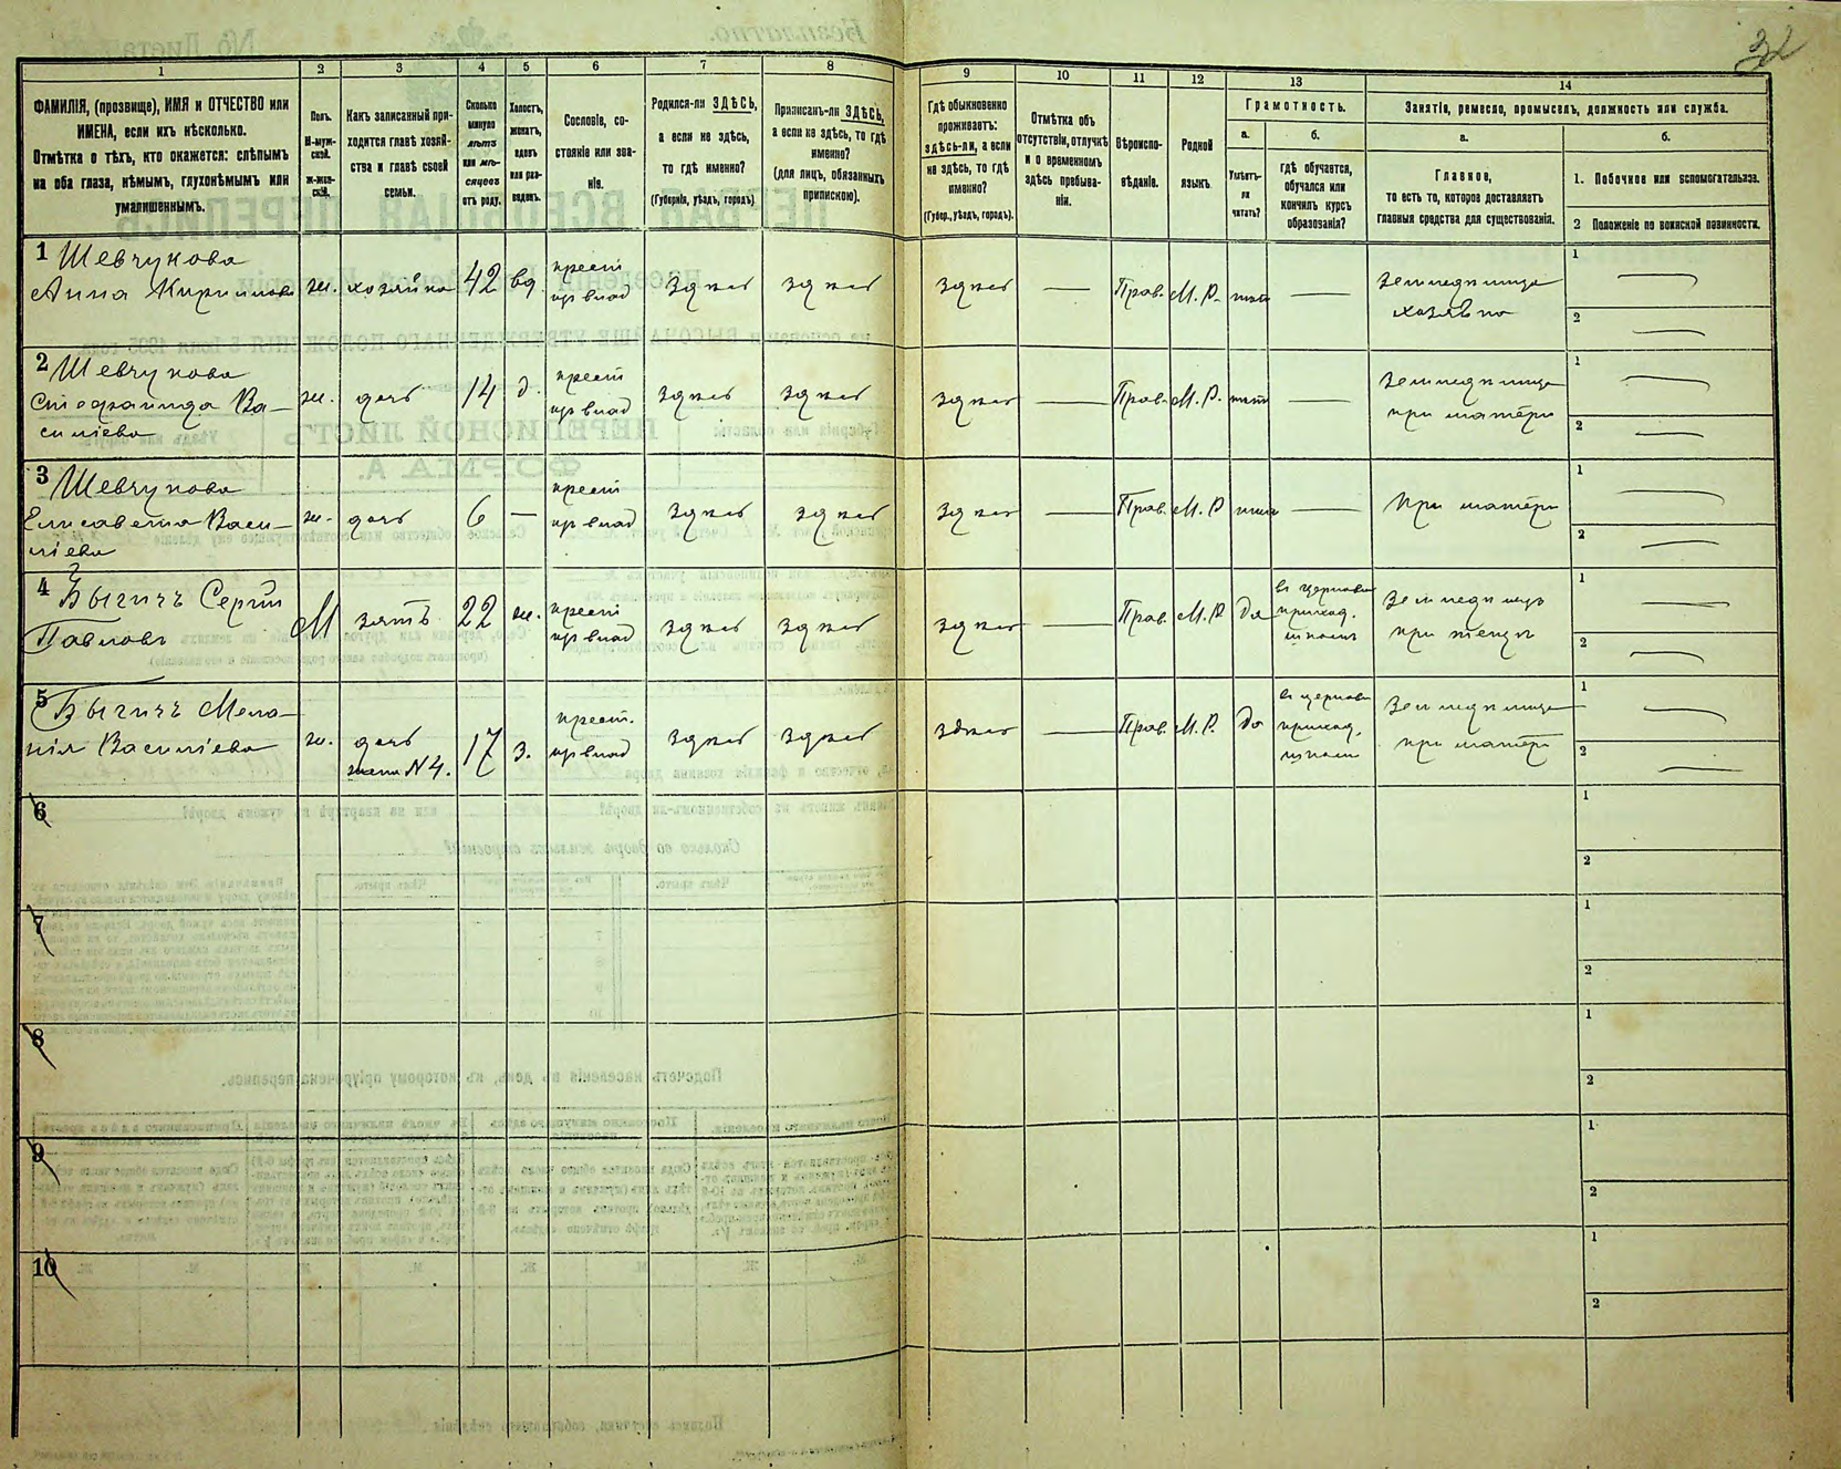 32
1 2 3 4 5 6 7 8 9 10 11 12 13 14
ФАМИЛІЯ, (прозвище), ИМЯ и ОТЧЕСТВО или
ИМЕНА, если ихъ нѣсколько.
Отмѣтка о тѣхъ, кто окажется: слѣпымъ
на оба глаза, нѣмымъ, глухонѣмымъ или
умалишеннымъ.
Полъ.
М-муж-
ской.
Ж-жен-
скій.
Какъ записанный при-
ходится главѣ хозяй-
ства и главѣ своей
семьи.
Сколько
минуло
лѣтъ
или мѣ-
сяцевъ
отъ роду.
Холостъ,
женатъ,
вдовъ
или раз-
веденъ.
Сословіе, со-
стояніе или зва-
ніе.
Родился-ли ЗДѢСЬ,
а если не здѣсь,
то гдѣ именно?
(Губернія, уѣздъ, городъ)
Приписанъ-ли ЗДѢСЬ,
а если не здѣсь, то гдѣ
именно?
(для лицъ, обязанныхъ
припискою).
Гдѣ обыкновенно
проживаетъ:
здѣсь-ли, а если
не здѣсь, то гдѣ
именно?
(Губер., уѣздъ, городъ).
Отмѣтка объ
отсутствіи, отлучкѣ
и о временномъ
здѣсь пребыва-
ніи.
Вѣроиспо-
вѣданіе.
Родной
языкъ.
Грамотность.
а.
Умѣетъ-
ли
читать?
б.
гдѣ обучается,
обучался или
кончилъ курсъ
образованія?
Занятія, ремесло, промыселъ, должность или служба.
а.
Главное,
то есть то, которое доставляетъ
главныя средства для существованія.
б.
1. Побочное или вспомогательное.
2 Положеніе по воинской повинности.
1 Шевчукова
Анна Кирилловa ж. хозяйка 42 вд. крест. здѣсь здѣсь здѣсь — Прав. М. Р. — земледѣлица
хозяйка
1
2
2 Шевчукова
Стефанида Ва-
силіева ж. дочь 14 д. крест. здѣсь здѣсь здѣсь — Прав. М. Р. — земледѣлица
при матери
1
2
3 Шевчукова
Елисавета Васи-
ліева ж. дочь 6 — крест. здѣсь здѣсь здѣсь — Прав. М. Р — при матери
1
2
4 Бычичъ Сергій
Павловъ М зять 22 ж. крест. здѣсь здѣсь здѣсь — Прав. М. Р да въ церковно
приход.
школѣ
1
2
5 Бычичъ Мела-
нія Василіева ж. дочь
жена N 4. 17 з. крест. здѣсь здѣсь здѣсь — Прав. М. Р. да въ церковно
приход.
школѣ земледѣлица
при матери
1
2
6
1
2
7
1
2
8
1
2
9
1
2
10
1
2